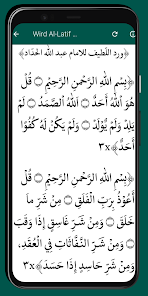 Wird Al-Latif ...
﴿ورد اللطيف للامام عبد الله الحداد﴾
﴿بِسْمِ اللهِ الرَّحْمنِ الرَّحِيْمِ ۝ قُلْ
هُوَ اللهُ أَحَدٌ ۝ اَللهُ الصَّمَدُ ۝ لَمْ
يَلِدْ وَلَمْ يُوْلَدْ ۝ وَلَمْ يَكُنْ لَهُ كُفُوًا
أَحَدٌ﴾ ٣x
﴿بِسْمِ اللهِ الرَّحْمنِ الرَّحِيْمِ ۝ قُلْ
أَعُوْذُ بِرَبِّ الْفَلَقِ ۝ مِنْ شَرِّ مَا
خَلَقَ ۝ وَمِنْ شَرِّ غَاسِقٍ إِذَا وَقَبَ
۝ وَمِنْ شَرِّ النَّفَّاثَاتِ فِي الْعُقَدِ،
وَمِنْ شَرِّ حَاسِدٍ إِذَا حَسَدَ﴾ ٣x